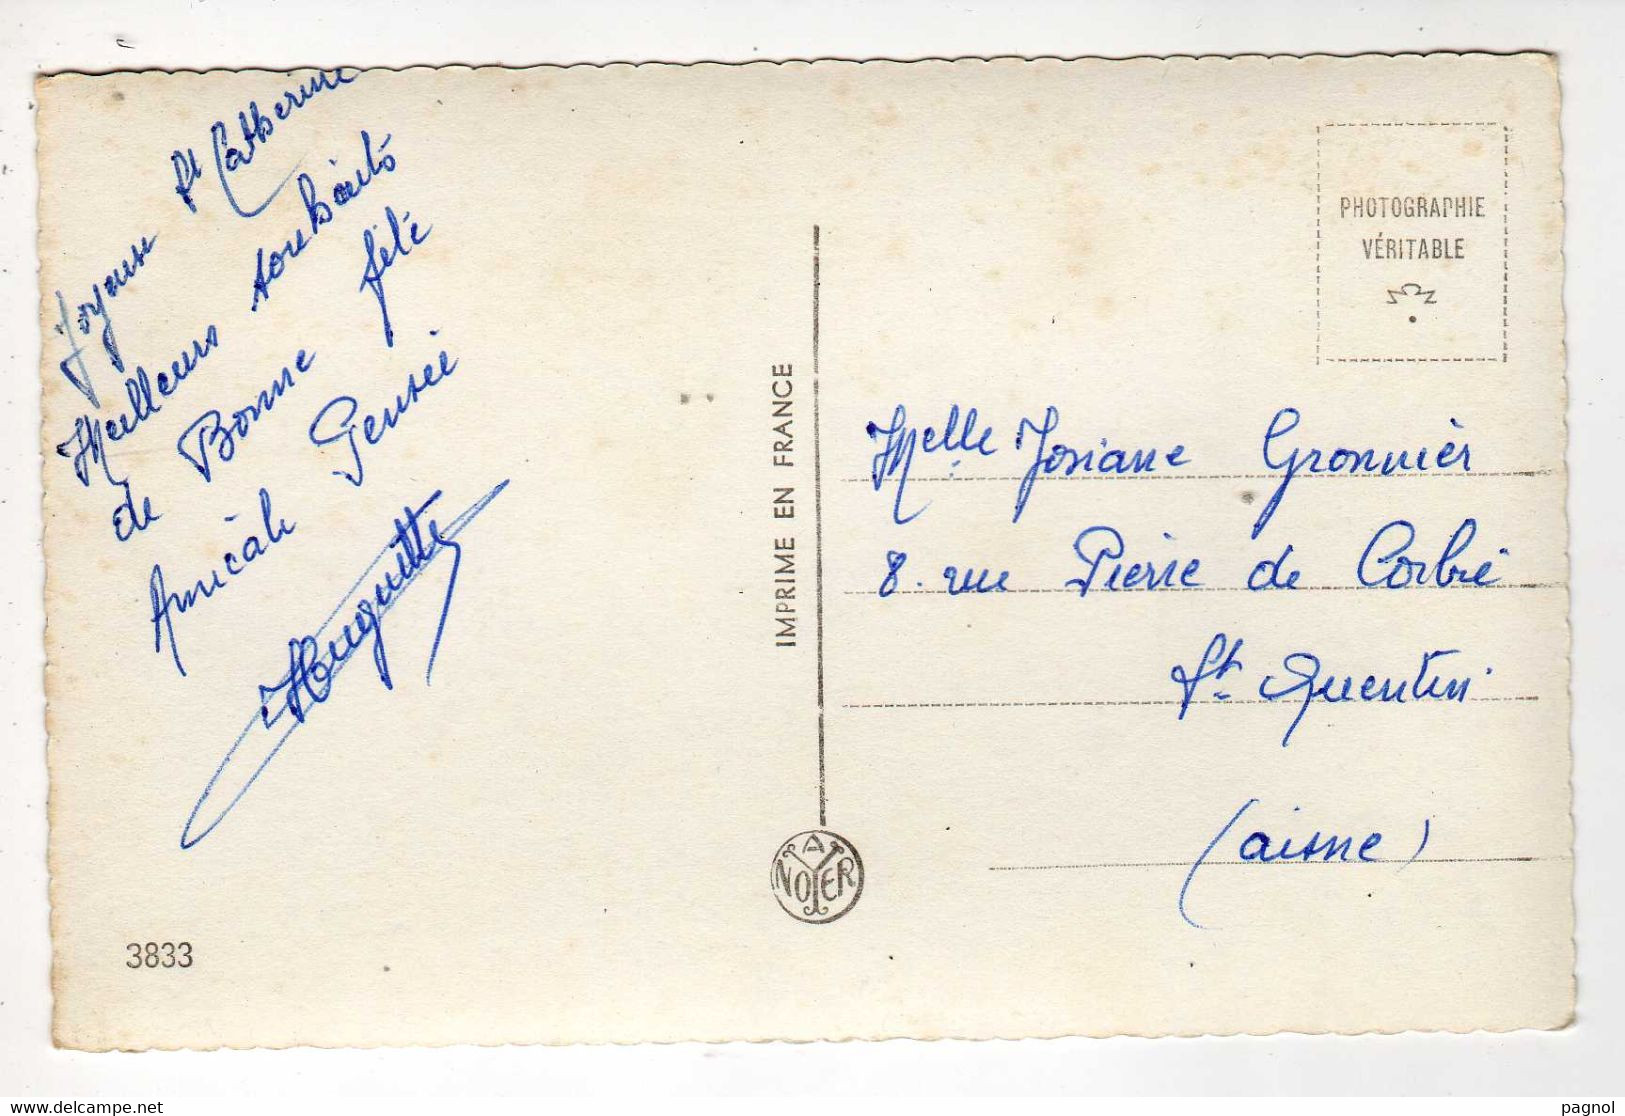 Joyeuse St Catherine
Meilleurs souhaits
de Bonne fête
Amicale Pensée
Huguette
3833
IMPRIME EN FRANCE
A NOYER
PHOTOGRAPHIE
VÉRITABLE
Melle Josiane Gronnier
8. rue Pierre de Corbie
St Quentin
(aisne)
www.delcampe.net
pagnol